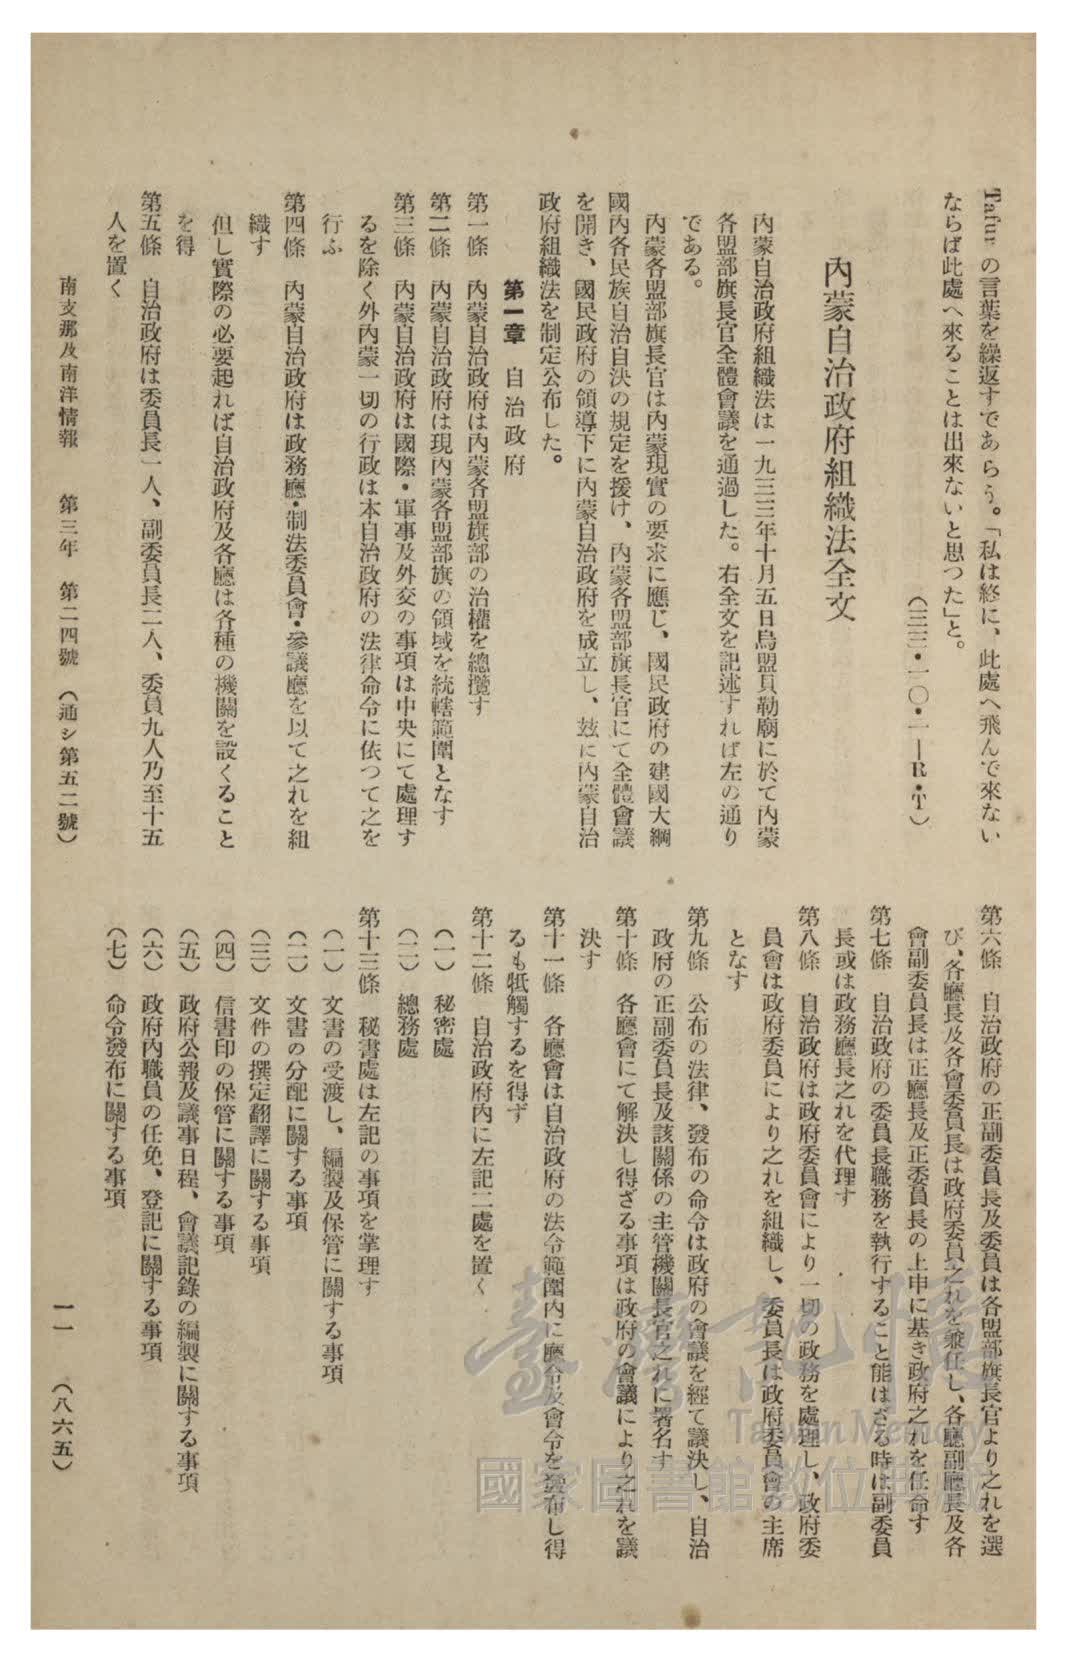 Tafur の言葉を繰返すであらう。「私は終に、此處へ飛んで來ない
ならば此處へ來ることは出來ないと思つた」と。
（三三・一〇・一—R・T）
內蒙自治政府組織法全文
內蒙自治政府組織法は一九三三年十月五日烏盟貝勒廟に於て內蒙
各盟部旗長官全體會議を通過した。右全文を記述すれば左の通り
である。
內蒙各盟部旗長官は內蒙現實の要求に應じ、國民政府の建國大綱
國內各民族自治自決の規定を援け、內蒙各盟部旗長官にて全體會議
を開き、國民政府の領導下に內蒙自治政府を成立し、玆に內蒙自治
政府組織法を制定公布した。
第一章　自治政府
第一條　內蒙自治政府は內蒙各盟旗部の治權を總攬す
第二條　內蒙自治政府は現內蒙各盟部旗の領域を統轄範圍となす
第三條　內蒙自治政府は國際・軍事及外交の事項は中央にて處理す
るを除く外內蒙一切の行政は本自治政府の法律命令に依つて之を
行ふ
第四條　內蒙自治政府は政務廳・制法委員會・參議廳を以て之れを組
織す
但し實際の必要起れば自治政府及各廳は各種の機關を設くること
を得
第五條　自治政府は委員長一人、副委員長二人、委員九人乃至十五
人を置く
第六條　自治政府の正副委員長及委員は各盟部旗長官より之れを選
び、各廳長及各會委員長は政府委員之れを兼任し、各廳副廳長及各
會副委員長は正廳長及正委員長の上申に基き政府之れを任命す
第七條　自治政府の委員長職務を執行すること能はざる時は副委員
長或は政務廳長之れを代理す
第八條　自治政府は政府委員會により一切の政務を處理し、政府委
員會は政府委員により之れを組織し、委員長は政府委員會の主席
となす
第九條　公布の法律、發布の命令は政府の會議を經て議決し、自治
政府の正副委員長及該關係の主管機關長官之れに署名す
第十條　各廳會にて解決し得ざる事項は政府の會議により之れを議
決す
第十一條　各廳會は自治政府の法令範圍內に廳令及會令を發布し得
るも牴觸するを得ず
第十二條　自治政府內に左記二處を置く
（一）　秘密處
（二）　總務處
第十三條　秘書處は左記の事項を掌理す
（一）　文書の受渡し、編製及保管に關する事項
（二）　文書の分配に關する事項
（三）　文件の撰定翻譯に關する事項
（四）　信書印の保管に關する事項
（五）　政府公報及議事日程、會議記錄の編製に關する事項
（六）　政府內職員の任免、登記に關する事項
（七）　命令發布に關する事項
南支那及南洋情報　第三年　第二四號　（通シ第五二號）
一一　（八六五）
臺灣記憶
Taiwan Memory
國家圖書館數位典藏